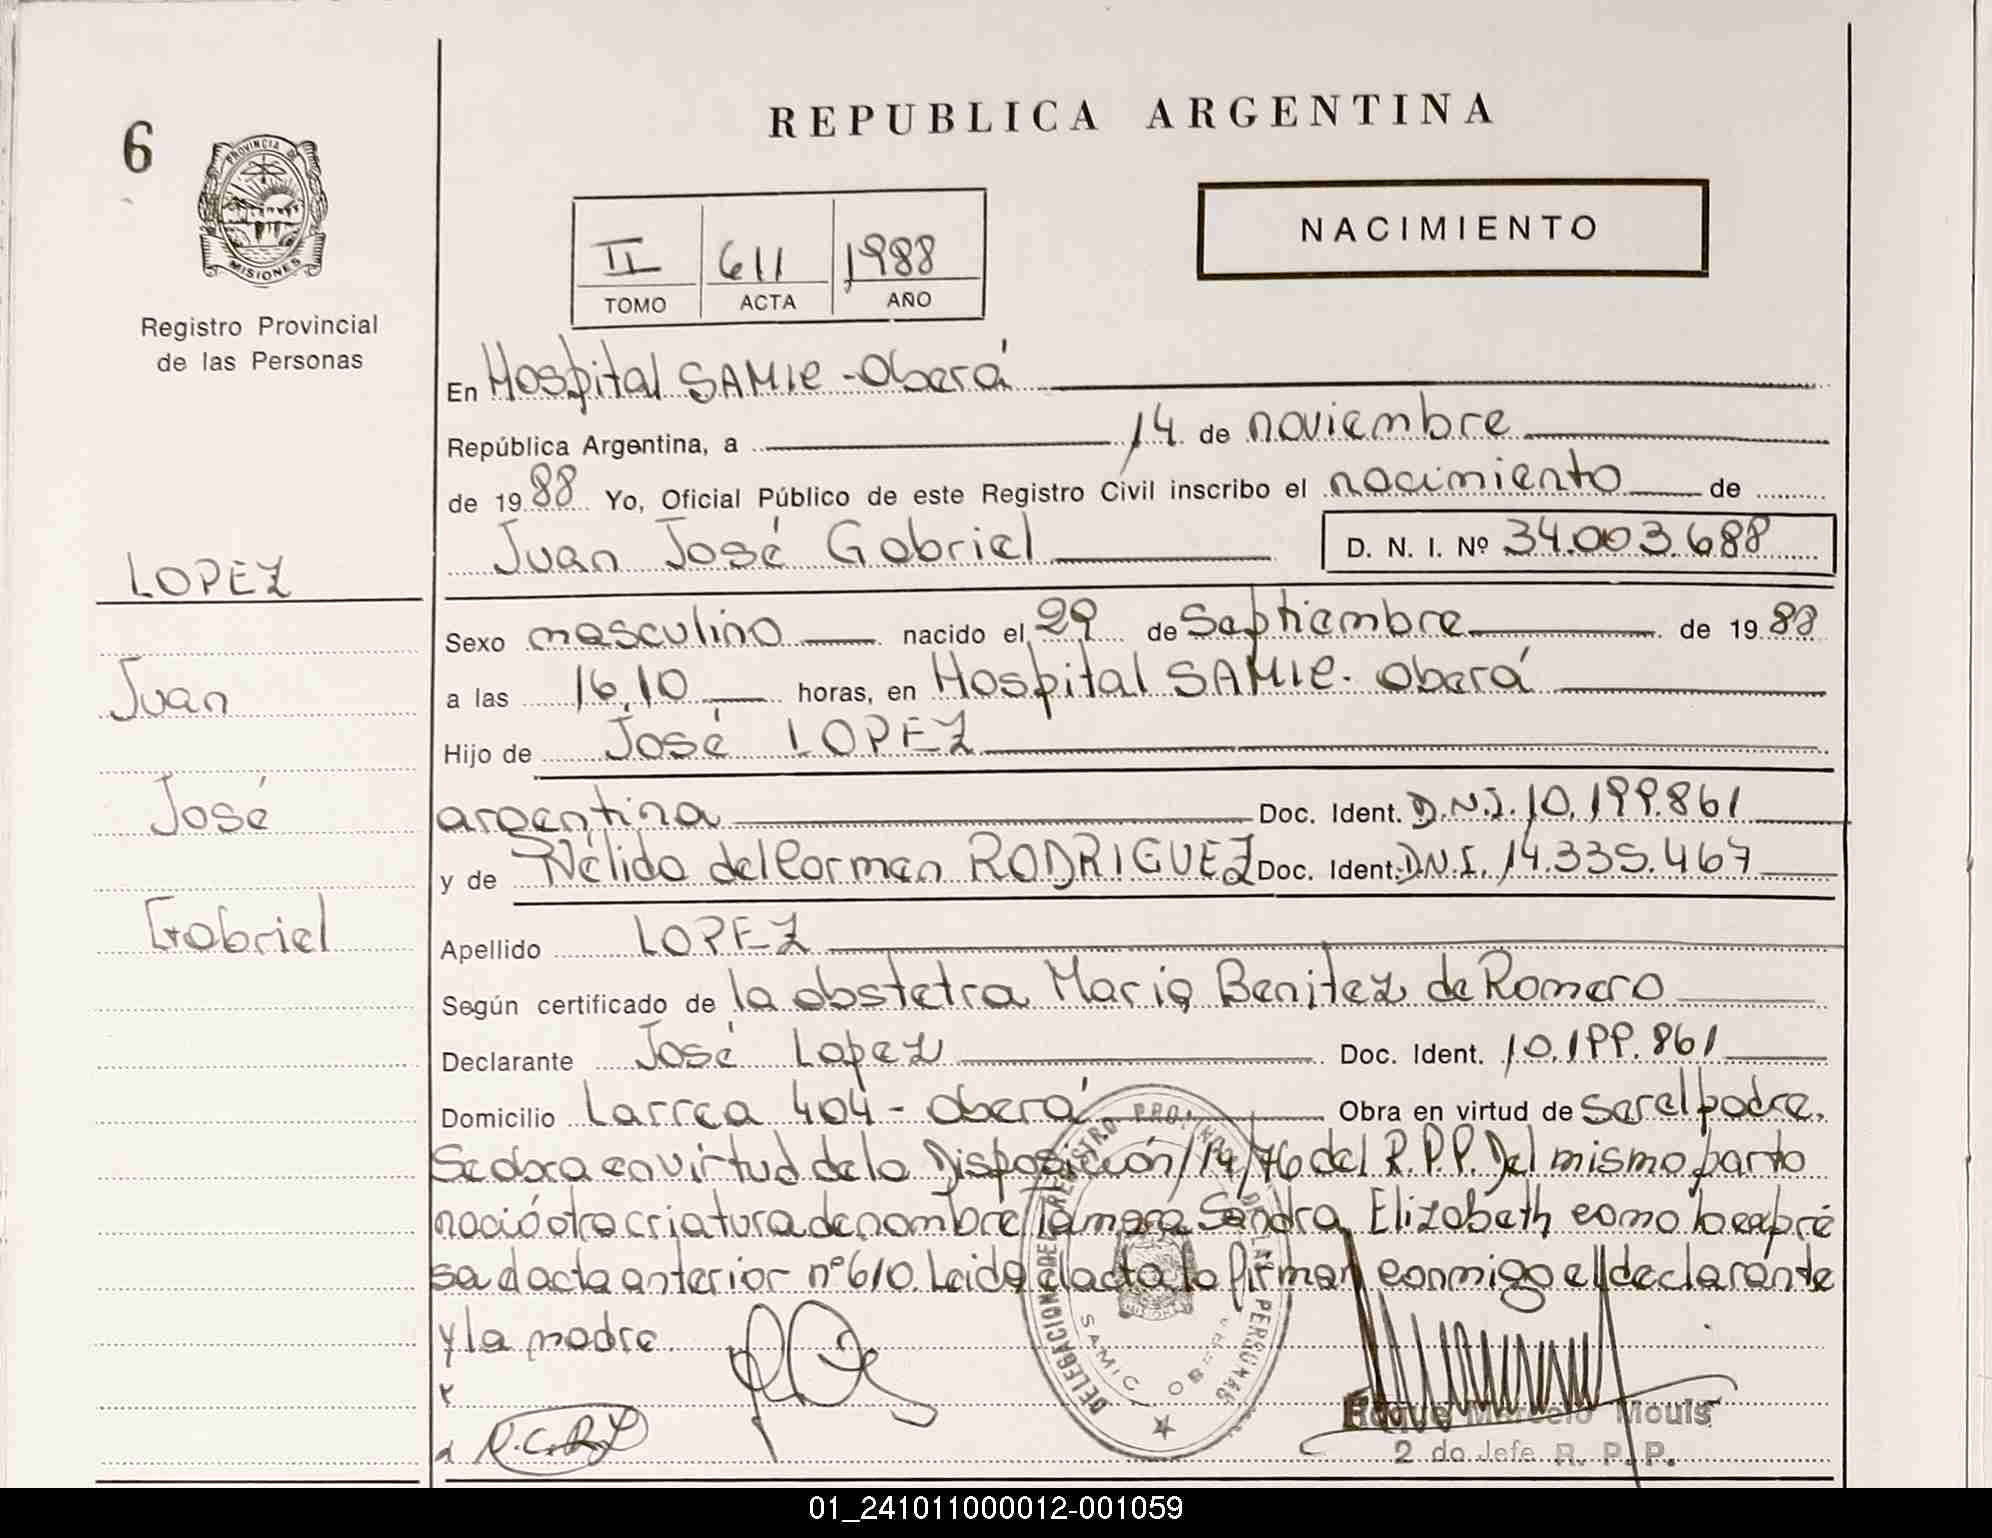 REPUBLICA ARGENTINA
6
PROVINCIA DE
MISIONES
Registro Provincial
de las Personas
NACIMIENTO
II 611 1988
TOMO ACTA AÑO
En Hospital SAMIC - Oberá
República Argentina, a 14 de noviembre
de 1988 Yo, Oficial Público de este Registro Civil inscribo el nacimiento de
Juan José Gabriel D. N. I. Nº 34.003.688
LOPEZ
Juan
José
Gabriel
Sexo masculino nacido el 29 de Septiembre de 1988
a las 16,10 horas, en Hospital SAMIC - Oberá
Hijo de José LOPEZ
argentina Doc. Ident. D.N.I. 10.199.861
y de Nélida del Carmen RODRIGUEZ Doc. Ident. D.N.I. 14.335.467
Apellido LOPEZ
Según certificado de la obstetra María Benitez de Romero
Declarante José Lopez Doc. Ident. 10.199.861
Domicilio Larrea 404 - Oberá Obra en virtud de ser el padre.
Se obra en virtud de la Disposición 14/76 del R.P.P. Del mismo parto
nació otra criatura de nombre Tamara Sandra Elizabeth como lo expré
sa el acta anterior nº 610. Leida el acta la firman conmigo el declarante
y la madre.
DELEGACION DEL REGISTRO PRO. DE LAS PERSONAS
SAMIC OBERA
R.C.R.L
Roque Marcelo Mouls
2 do Jefe R. P. P.
01_241011000012-001059